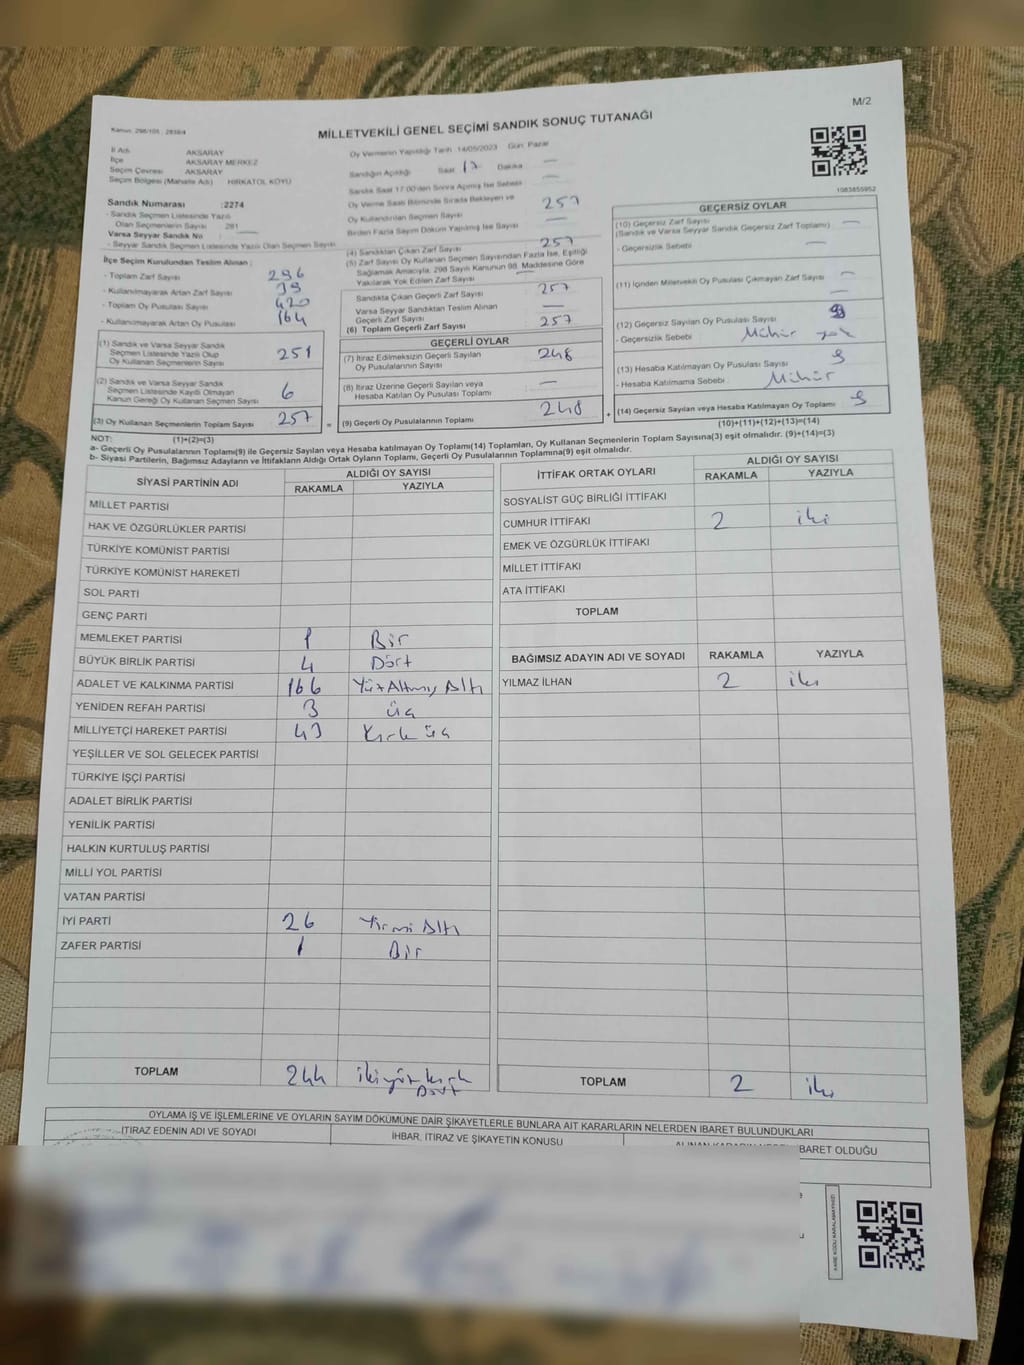 M/2
Kanun: 298/105 , 2839/4
MİLLETVEKİLİ GENEL SEÇİMİ SANDIK SONUÇ TUTANAĞI
İl Adı AKSARAY
İlçe AKSARAY MERKEZ
Seçim Çevresi AKSARAY
Seçim Bölgesi (Mahalle Adı) HIRKATOL KÖYÜ
Sandık Numarası :2274
- Sandık Seçmen Listesinde Yazılı
Olan Seçmenlerin Sayısı 281
Varsa Seyyar Sandık No
- Seyyar Sandık Seçmen Listesinde Yazılı Olan Seçmen Sayısı
İlçe Seçim Kurulundan Teslim Alınan :
- Toplam Zarf Sayısı 296
- Kullanılmayarak Artan Zarf Sayısı 39
- Toplam Oy Pusulası Sayısı 420
- Kullanılmayarak Artan Oy Pusulası 164
(1) Sandık ve Varsa Seyyar Sandık
Seçmen Listesinde Yazılı Olup
Oy Kullanan Seçmenlerin Sayısı 251
(2) Sandık ve Varsa Seyyar Sandık
Seçmen Listesinde Kayıtlı Olmayan
Kanun Gereği Oy Kullanan Seçmen Sayısı 6
(3) Oy Kullanan Seçmenlerin Toplam Sayısı 257 =
Oy Vermenin Yapıldığı Tarih 14/05/2023 Gün Pazar
Sandığın Açıldığı Saat 17 Dakika —
Sandık Saat 17:00'den Sonra Açılmış İse Sebebi —
Oy Verme Saati Bitiminde Sırada Bekleyen ve
Oy Kullandırılan Seçmen Sayısı 257
Birden Fazla Sayım Döküm Yapılmış İse Sayısı —
(4) Sandıktan Çıkan Zarf Sayısı 257
(5) Zarf Sayısı Oy Kullanan Seçmen Sayısından Fazla İse, Eşitliği
Sağlamak Amacıyla, 298 Sayılı Kanunun 98. Maddesine Göre
Yakılarak Yok Edilen Zarf Sayısı —
Sandıkta Çıkan Geçerli Zarf Sayısı 257
Varsa Seyyar Sandıktan Teslim Alınan
Geçerli Zarf Sayısı —
(6) Toplam Geçerli Zarf Sayısı 257
GEÇERLİ OYLAR
(7) İtiraz Edilmeksizin Geçerli Sayılan
Oy Pusulalarının Sayısı 248
(8) İtiraz Üzerine Geçerli Sayılan veya
Hesaba Katılan Oy Pusulası Toplamı —
(9) Geçerli Oy Pusulalarının Toplamı 248 +
1083855952
GEÇERSİZ OYLAR
(10) Geçersiz Zarf Sayısı —
(Sandık ve Varsa Seyyar Sandık Geçersiz Zarf Toplamı)
- Geçersizlik Sebebi —
(11) İçinden Milletvekili Oy Pusulası Çıkmayan Zarf Sayısı —
(12) Geçersiz Sayılan Oy Pusulası Sayısı
- Geçersizlik Sebebi Mühür yok
(13) Hesaba Katılmayan Oy Pusulası Sayısı 9
- Hesaba Katılmama Sebebi Mühür
(14) Geçersiz Sayılan veya Hesaba Katılmayan Oy Toplamı 9
(10)+(11)+(12)+(13)=(14)
NOT: (1)+(2)=(3)
a- Geçerli Oy Pusulalarının Toplamı(9) ile Geçersiz Sayılan veya Hesaba katılmayan Oy Toplamı(14) Toplamları, Oy Kullanan Seçmenlerin Toplam Sayısına(3) eşit olmalıdır. (9)+(14)=(3)
b- Siyasi Partilerin, Bağımsız Adayların ve İttifakların Aldığı Ortak Oyların Toplamı, Geçerli Oy Pusulalarının Toplamına(9) eşit olmalıdır.
SİYASİ PARTİNİN ADI ALDIĞI OY SAYISI
RAKAMLA YAZIYLA
MİLLET PARTİSİ
HAK VE ÖZGÜRLÜKLER PARTİSİ
TÜRKİYE KOMÜNİST PARTİSİ
TÜRKİYE KOMÜNİST HAREKETİ
SOL PARTİ
GENÇ PARTİ
MEMLEKET PARTİSİ 1 Bir
BÜYÜK BİRLİK PARTİSİ 4 Dört
ADALET VE KALKINMA PARTİSİ 166 Yüz Altmış Altı
YENİDEN REFAH PARTİSİ 3 üç
MİLLİYETÇİ HAREKET PARTİSİ 43 Kırk üç
YEŞİLLER VE SOL GELECEK PARTİSİ
TÜRKİYE İŞÇİ PARTİSİ
ADALET BİRLİK PARTİSİ
YENİLİK PARTİSİ
HALKIN KURTULUŞ PARTİSİ
MİLLİ YOL PARTİSİ
VATAN PARTİSİ
İYİ PARTİ 26 Yirmi Altı
ZAFER PARTİSİ 1 Bir
TOPLAM 244 ikiyüz kırk
Dört
İTTİFAK ORTAK OYLARI ALDIĞI OY SAYISI
RAKAMLA YAZIYLA
SOSYALİST GÜÇ BİRLİĞİ İTTİFAKI
CUMHUR İTTİFAKI 2 iki
EMEK VE ÖZGÜRLÜK İTTİFAKI
MİLLET İTTİFAKI
ATA İTTİFAKI
TOPLAM
BAĞIMSIZ ADAYIN ADI VE SOYADI RAKAMLA YAZIYLA
YILMAZ İLHAN 2 iki
TOPLAM 2 iki
OYLAMA İŞ VE İŞLEMLERİNE VE OYLARIN SAYIM DÖKÜMÜNE DAİR ŞİKAYETLERLE BUNLARA AİT KARARLARIN NELERDEN İBARET BULUNDUKLARI
İTİRAZ EDENİN ADI VE SOYADI
İHBAR, İTİRAZ VE ŞİKAYETİN KONUSU
İBARET OLDUĞU
KARE KODU KARALAMAYINIZ!